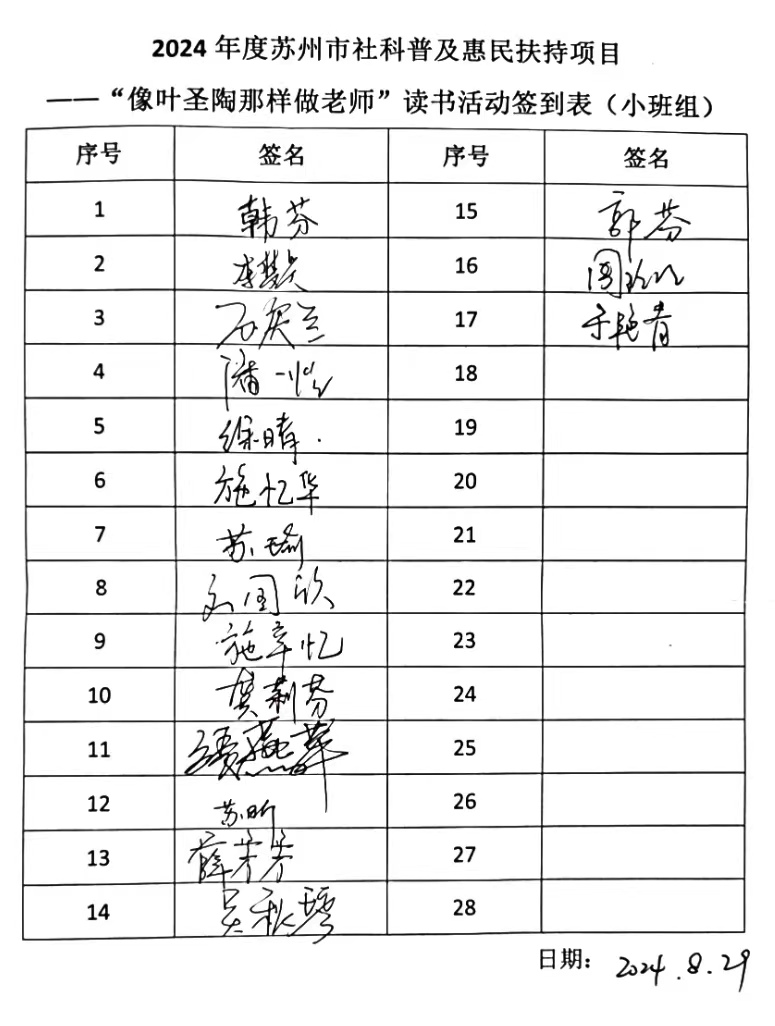 2024 年度苏州市社科普及惠民扶持项目
——“像叶圣陶那样做老师”读书活动签到表（小班组）
序号 签名 序号 签名
1 韩芬 15 郭芬
2 李慧 16 周
3 石 兰 17 于艳青
4 潘一 18
5 徐晴. 19
6 施忆华 20
7 苏瑜 21
8 刘国欣 22
9 施辛忆 23
10 莫莉芬 24
11 燕华 25
12 苏昕 26
13 薛芳芳 27
14 吴秋琴 28
日期： 2024.8.29